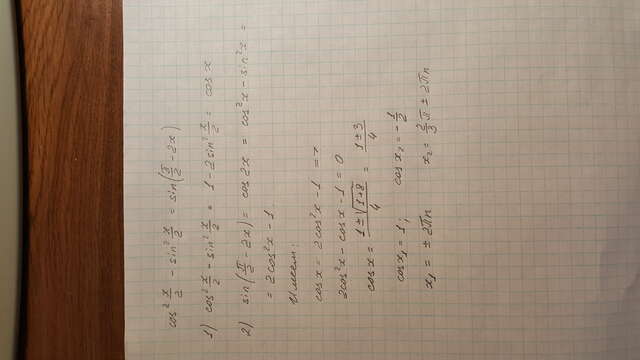 cos² x/2 - sin² x/2 = sin(π/2 - 2x)
1) cos² x/2 - sin² x/2 = 1 - 2sin² x/2 = cos x
2) sin(π/2 - 2x) = cos 2x = cos²x - sin²x =
= 2cos²x - 1.
Имеем:
cos x = 2cos²x - 1 =>
2cos²x - cos x - 1 = 0
cos x = (1 ± √(1+8))/4 = (1 ± 3)/4
cos x₁ = 1; cos x₂ = - 1/2
x₁ = ± 2πn x₂ = 2/3 π ± 2πn